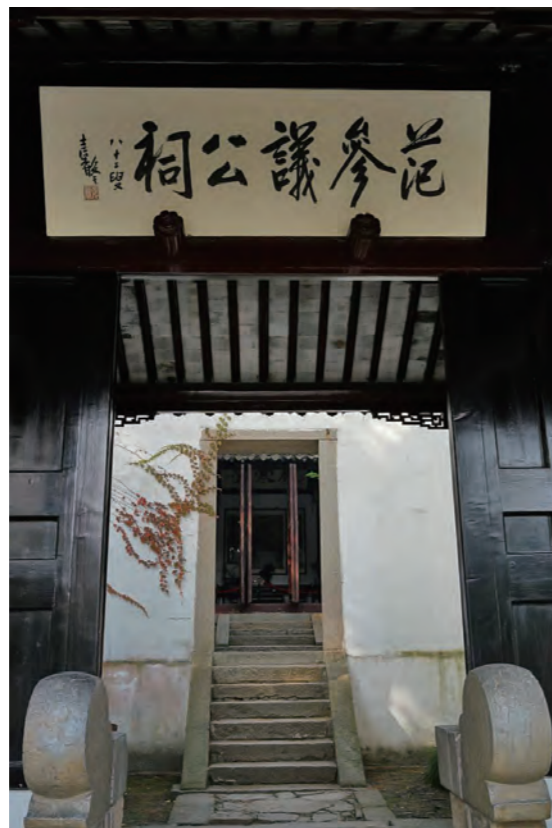 范參議公祠
八十二叟